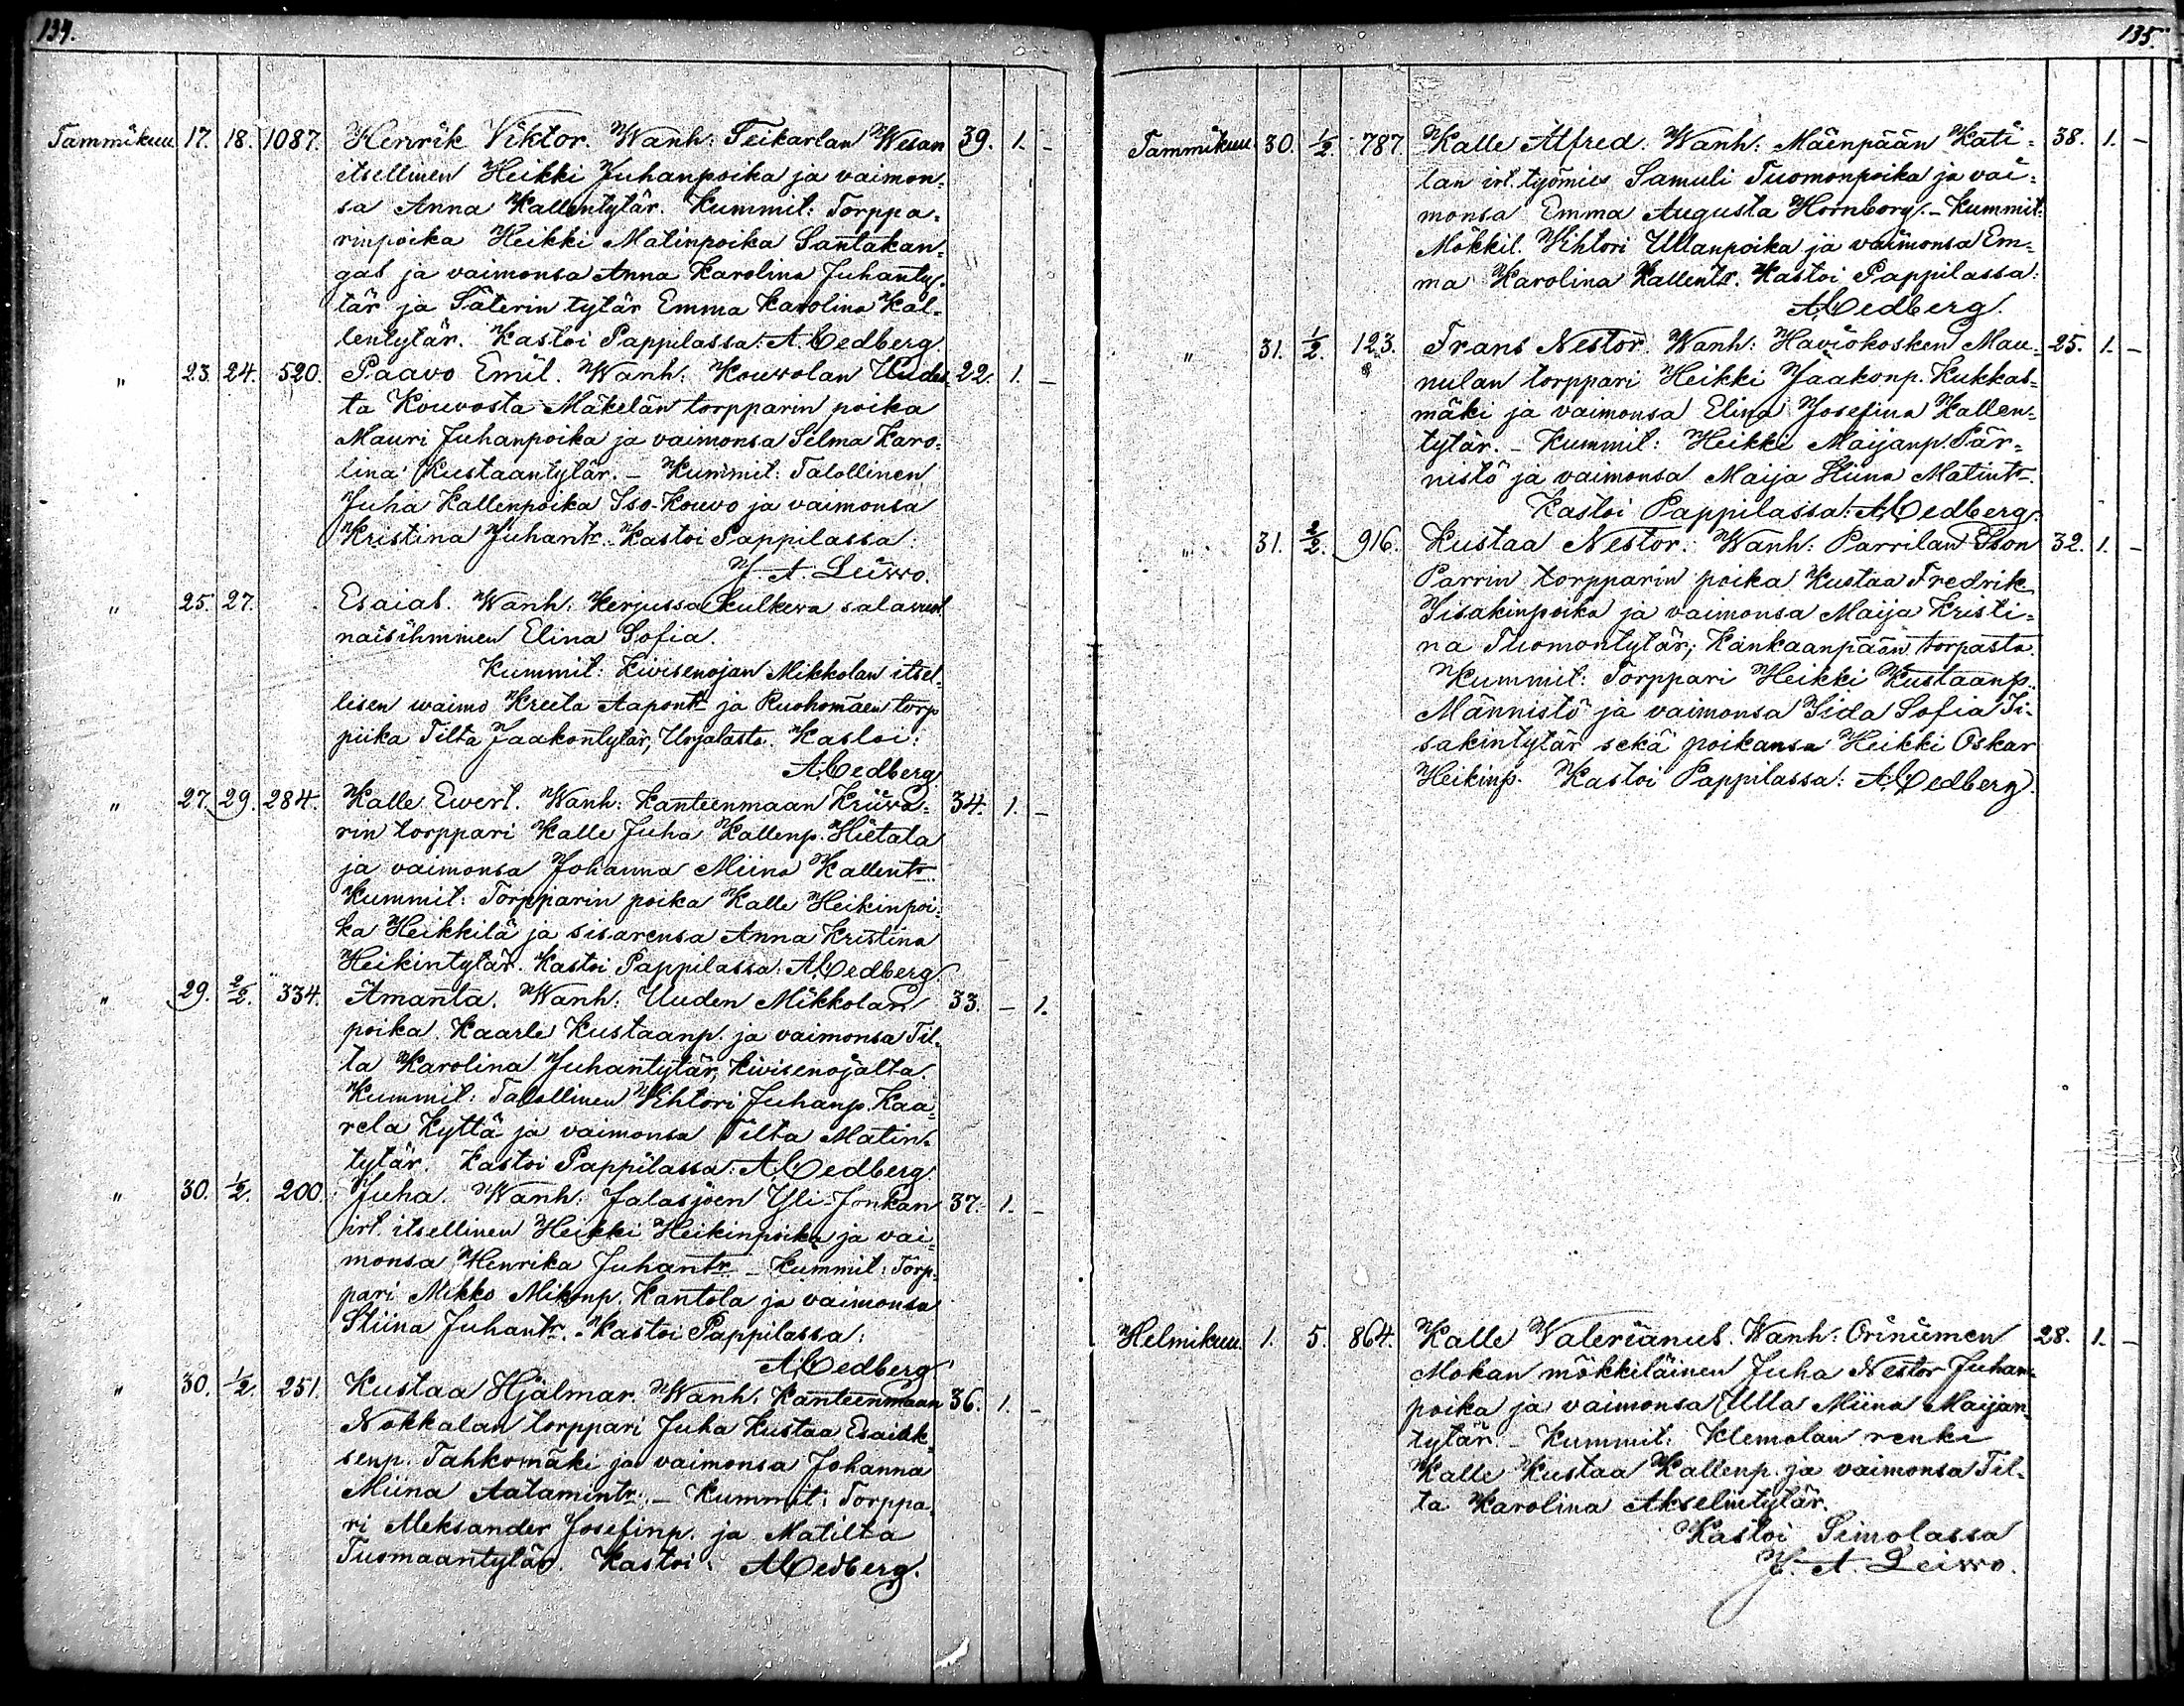 134.
Tammikuu 17. 18. 1087. Henrik Viktor. Wanh: Teikarlan Wesan 39. 1. -
itsellinen Heikki Juhanpoika ja vaimon=
sa Anna Kallentytär. Kummit: Torppa=
rinpoika Heikki Matinpoika Santakan=
gas ja vaimonsa Anna Karolina Juhanty=
tär ja Säterin tytär Emma Karolina Kal=
lentytär. Kastoi Pappilassa: A. Cedberg.
" 23. 24. 520. Paavo Emil. Wanh: Kouvolan Uudes= 22. 1. -
ta Kouvosta Mäkelän torpparin poika
Mauri Juhanpoika ja vaimonsa Selma Karo=
lina Kustaantytär. - Kummit: Talollinen
Juha Kallenpoika Iso-Kouvo ja vaimonsa
Kristina Juhantr. Kastoi Pappilassa:
J. A. Leiwo.
" 25. 27. Esaias. Wanh: Kerjussa kulkeva salavuot.
naisihminen Elina Sofia.
Kummit: Kivisenojan Mikkolan itsel=
lisen waimo Kreeta Aapontr ja Ruohomäen torp
piika Tilta Jaakontytär, Urjalasta. Kastoi:
A. Cedberg.
" 27. 29. 284. Kalle Ewert. Wanh: Kanteenmaan Kriiva= 34. 1. -
rin torppari Kalle Juha Kallenp. Hietala
ja vaimonsa Johanna Miina Kallentr.
Kummit: Torpparin poika Kalle Heikinpoi=
ka Heikkilä ja sisarensa Anna Kristina
Heikintytär. Kastoi Pappilassa: A. Cedberg.
" 29. 2/2. 334. Amanta. Wanh: Uuden Mikkolan 33. - 1.
poika Kaarle Kustaanp. ja vaimonsa Til=
ta Karolina Juhantytär, Kivisenojalta.
Kummit: Talollinen Wihtori Juhanp. Kaa=
rela Kyttä ja vaimonsa Tilta Matin=
tytär. Kastoi Pappilassa: A. Cedberg.
" 30. 1/2. 200. Juha. Wanh: Jalasjoen Yli-Jonkan 37. 1. -
irt. itsellinen Heikki Heikinpoika ja vai=
monsa Henrika Juhantr. - Kummit: Torp=
pari Mikko Mikonp. Kantola ja vaimonsa
Stiina Juhantr. - Kastoi Pappilassa:
A. Cedberg.
" 30. 1/2. 251. Kustaa Hjalmar. Wanh: Kanteenmaan 36. 1. -
Nokkalan torppari Juha Kustaa Esaiak=
senp. Tahkomäki ja vaimonsa Johanna
Miina Aatamintr. - Kummit: Torppa=
ri Aleksander Josefinp. ja Matilta
Tuomaantytär. Kastoi: A. Cedberg.
135.
Tammikuu 30. 1/2. 787. Kalle Alfred. Wanh: Mäenpään Kati= 38. 1. -
lan irt. työmies Samuli Tuomonpoika ja vai=
monsa Emma Augusta Hornborg. - Kummit:
Mökkil. Wihtori Ullanpoika ja vaimonsa Em=
ma Karolina Kallentr. Kastoi Pappilassa:
A. Cedberg.
" 31. 1/2. 123. Frans Nestor. Wanh: Haviokosken Mau= 25. 1. -
nulan torppari Heikki Jaakonp. Kukkas=
mäki ja vaimonsa Elina Josefina Kallen=
tytär. - Kummit: Heikki Maijanp. Pär=
nistö ja vaimonsa Maija Stiina Matintr.
Kastoi Pappilassa: A. Cedberg.
" 31. 2/2. 916. Kustaa Nestor. Wanh: Parrilan Ison 32. 1. -
Parrin torpparin poika Kustaa Fredrik
Iisakinpoika ja vaimonsa Maija Kristi=
na Tuomontytär, Kankaanpään torpasta.
Kummit: Torppari Heikki Kustaanp.
Männistö ja vaimonsa Iida Sofia Ii=
sakintytär sekä poikansa Heikki Oskar
Heikinp. Kastoi Pappilassa: A. Cedberg.
Helmikuu 1. 5. 864. Kalle Valerianus. Wanh: Oriniemen 28. 1. -
Mokan mökkiläinen Juha Nestor Juhan=
poika ja vaimonsa Ulla Miina Maijan=
tytär. - Kummit: Klemolan renki
Kalle Kustaa Kallenp. ja vaimonsa Til=
ta Karolina Akselintytär.
Kastoi Simolassa
J. A. Leiwo.